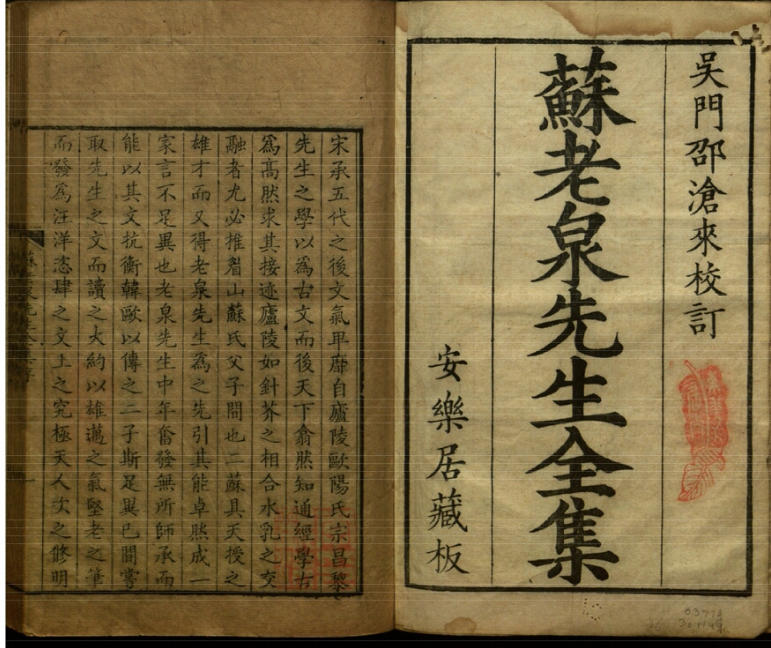 吳門邵滄來校訂
蘇老泉先生全集
安樂居藏板
宋承五代之後文氣卑靡自廬陵歐陽氏宗昌黎
先生之學以爲古文而後天下翕然知通經學古
爲髙然求其接迹廬陵如針芥之相合水乳之交
融者尤必推眉山蘇氏父子間也二蘇具天授之
雄才而又得老泉先生爲之先引其能卓然成一
家言不足異也老泉先生中年奮發無所師承而
能以其文抗衡韓歐以傳之二子斯足異已間嘗
取先生之文而讀之大約以雄邁之氣堅老之筆
而發爲汪洋恣肆之文上之究極天人次之修明